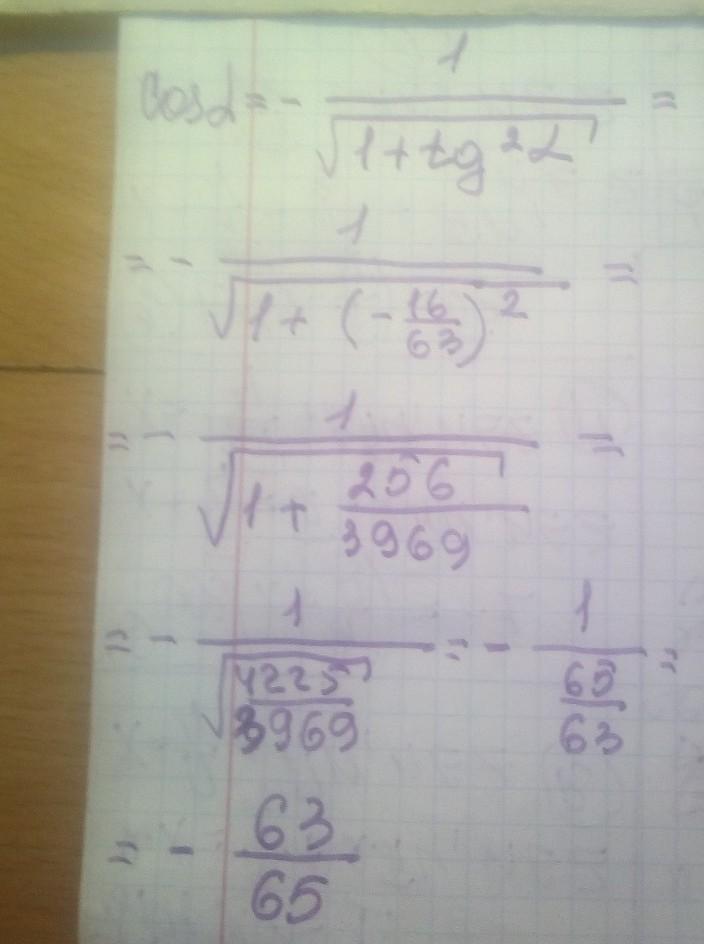 cos α = - 1/√(1 + tg²α) =
= - 1/√(1 + (-16/63)²) =
= - 1/√(1 + 256/3969) =
= - 1/√(4225/3969) = - 1/(65/63) =
= - 63/65